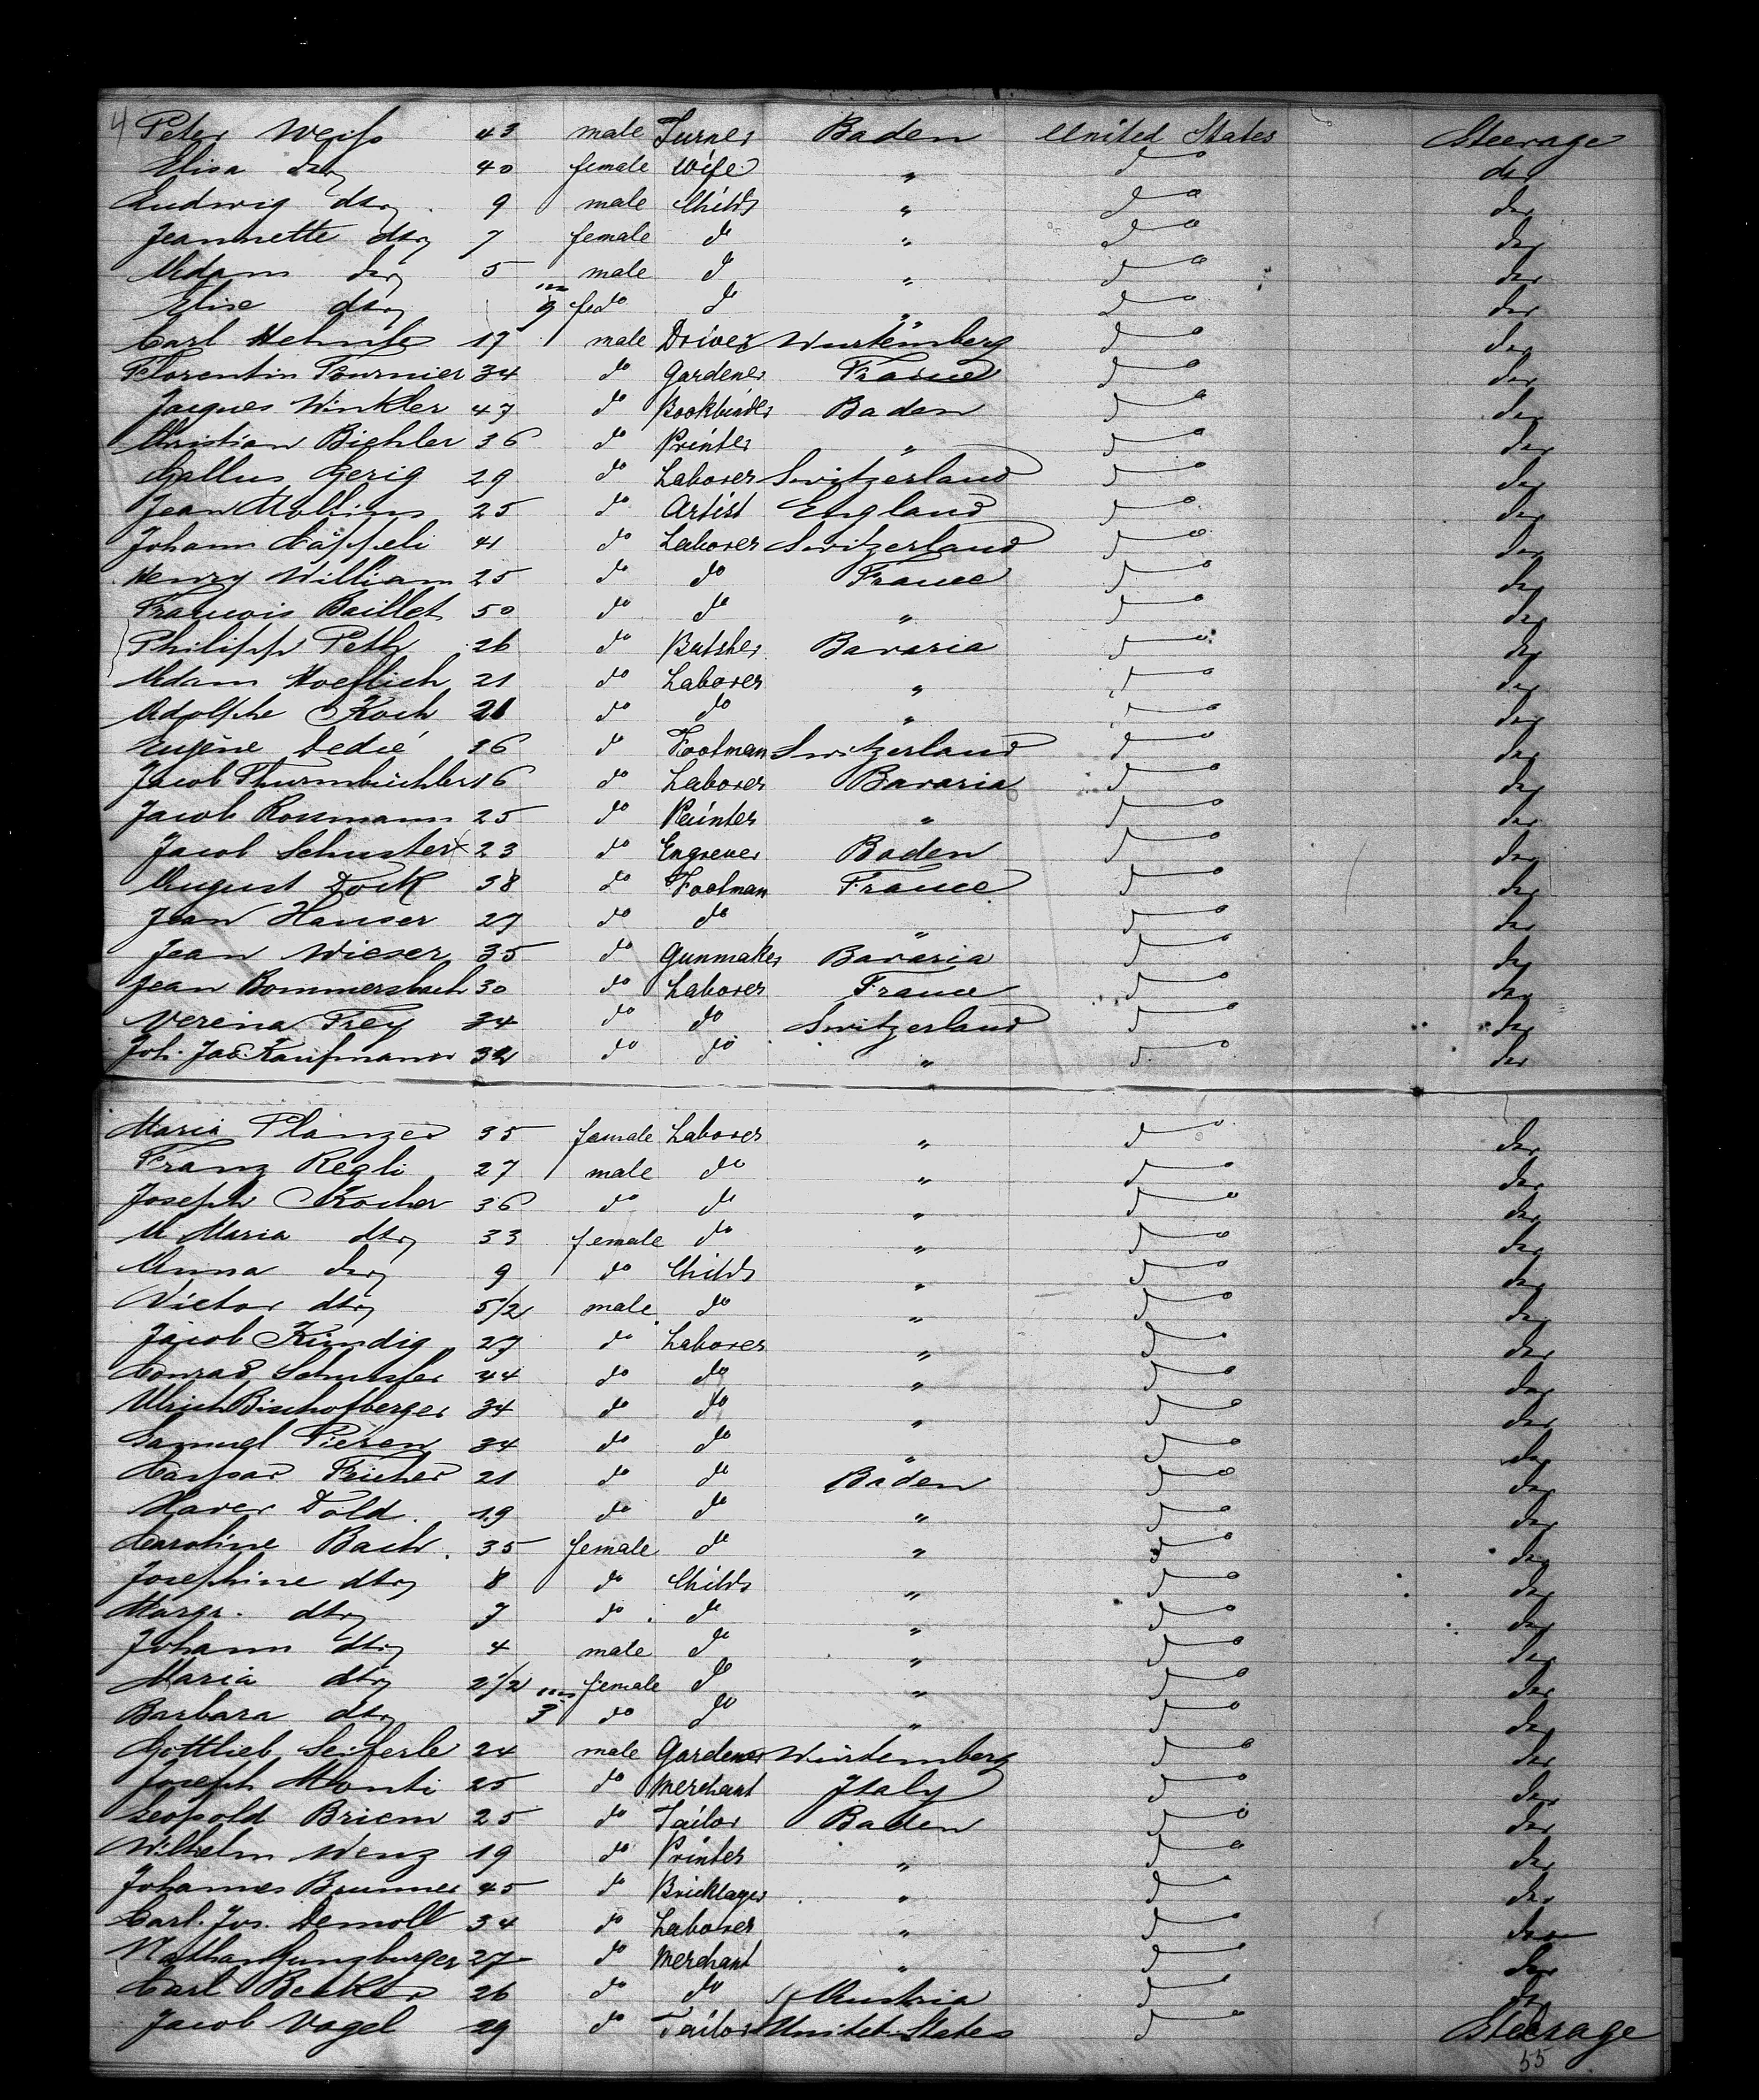 4 Peter Weiss 43 male Turner Baden United States Steerage
Elisa dto 40 female Wife " do do
Ludwig dto 9 male Child " do do
Jeannette dto 7 female do " do do
Adam dto 5 male do " do do
Elise dto 9 m fe do do " do do
Carl 17 male Driver Wurtemberg do do
Florentin Fournier 34 do Gardener France do do
Jacques Winkler 47 do Bookbinder Baden do do
Christian Bichler 36 do Printer " do do
Gallus Gerig 29 do Laborer Switzerland do do
Jean Mollins 25 do Artist England do do
Johann Käppeli 41 do Laborer Switzerland do do
Henry William 25 do do France do do
Francois Baillet 50 do do " do do
Philipp Peth 26 do Butsher Bavaria do do
Adam Hoeflich 21 do Laborer " do do
Adolphe Koch 21 do do " do do
Eugène Dedié 26 do Footman Switzerland do do
Jacob Thurmbüchler 16 do Laborer Bavaria do do
Jacob Rossmann 25 do Painter " do do
Jacob Schuster x 23 do Engraver Baden do do
August Dock 38 do Footman France do do
Jean Hauser 27 do do " do do
Jean Wieser 35 do Gunmaker Bavaria do do
Jean Bommersbach 30 do Laborer France do do
Verena Frey 34 do do Switzerland do do
Joh. Jac. Kaufmann 32 do do " do do
Maria Planzer 35 female Laborer " do do
Franz Regli 27 male do " do do
Joseph Kocher 36 do do " do do
A Maria dto 33 female do " do do
Anna dto 9 do Child " do do
Victor dto 5 1/2 male do " do do
Jacob Kündig 27 do Laborer " do do
Conrad 44 do do " do do
Ulrich Bischofberger 34 do do " do do
Samuel Pieren 34 do do " do do
Caspar Feicher 21 do do Baden do do
Xaver Dold. 19 do do " do do
Caroline Bach. 35 female do " do do
Josephine dto 8 do Child " do do
Margr. dto 7 do do " do do
Johann dto 4 male do " do do
Maria dto 2 1/2 female do " do do
Barbara dto 3 m do do " do do
Gottlieb Seiferle 24 male Gardener Würtemberg do do
Joseph Monti 25 do Merchant Italy do do
Leopold Briem 25 do Tailor Baden do do
Wilhelm Wenz 19 do Printer " do do
Johannes Brunner 45 do Bricklayer " do do
Carl. Jos. Demoll 34 do Laborer " do do
Nathan Gunzburger 27 do Merchant " do do
Carl Becker 26 do do Austria do do
Jacob Vogel 29 do Tailor United States do Steerage
55